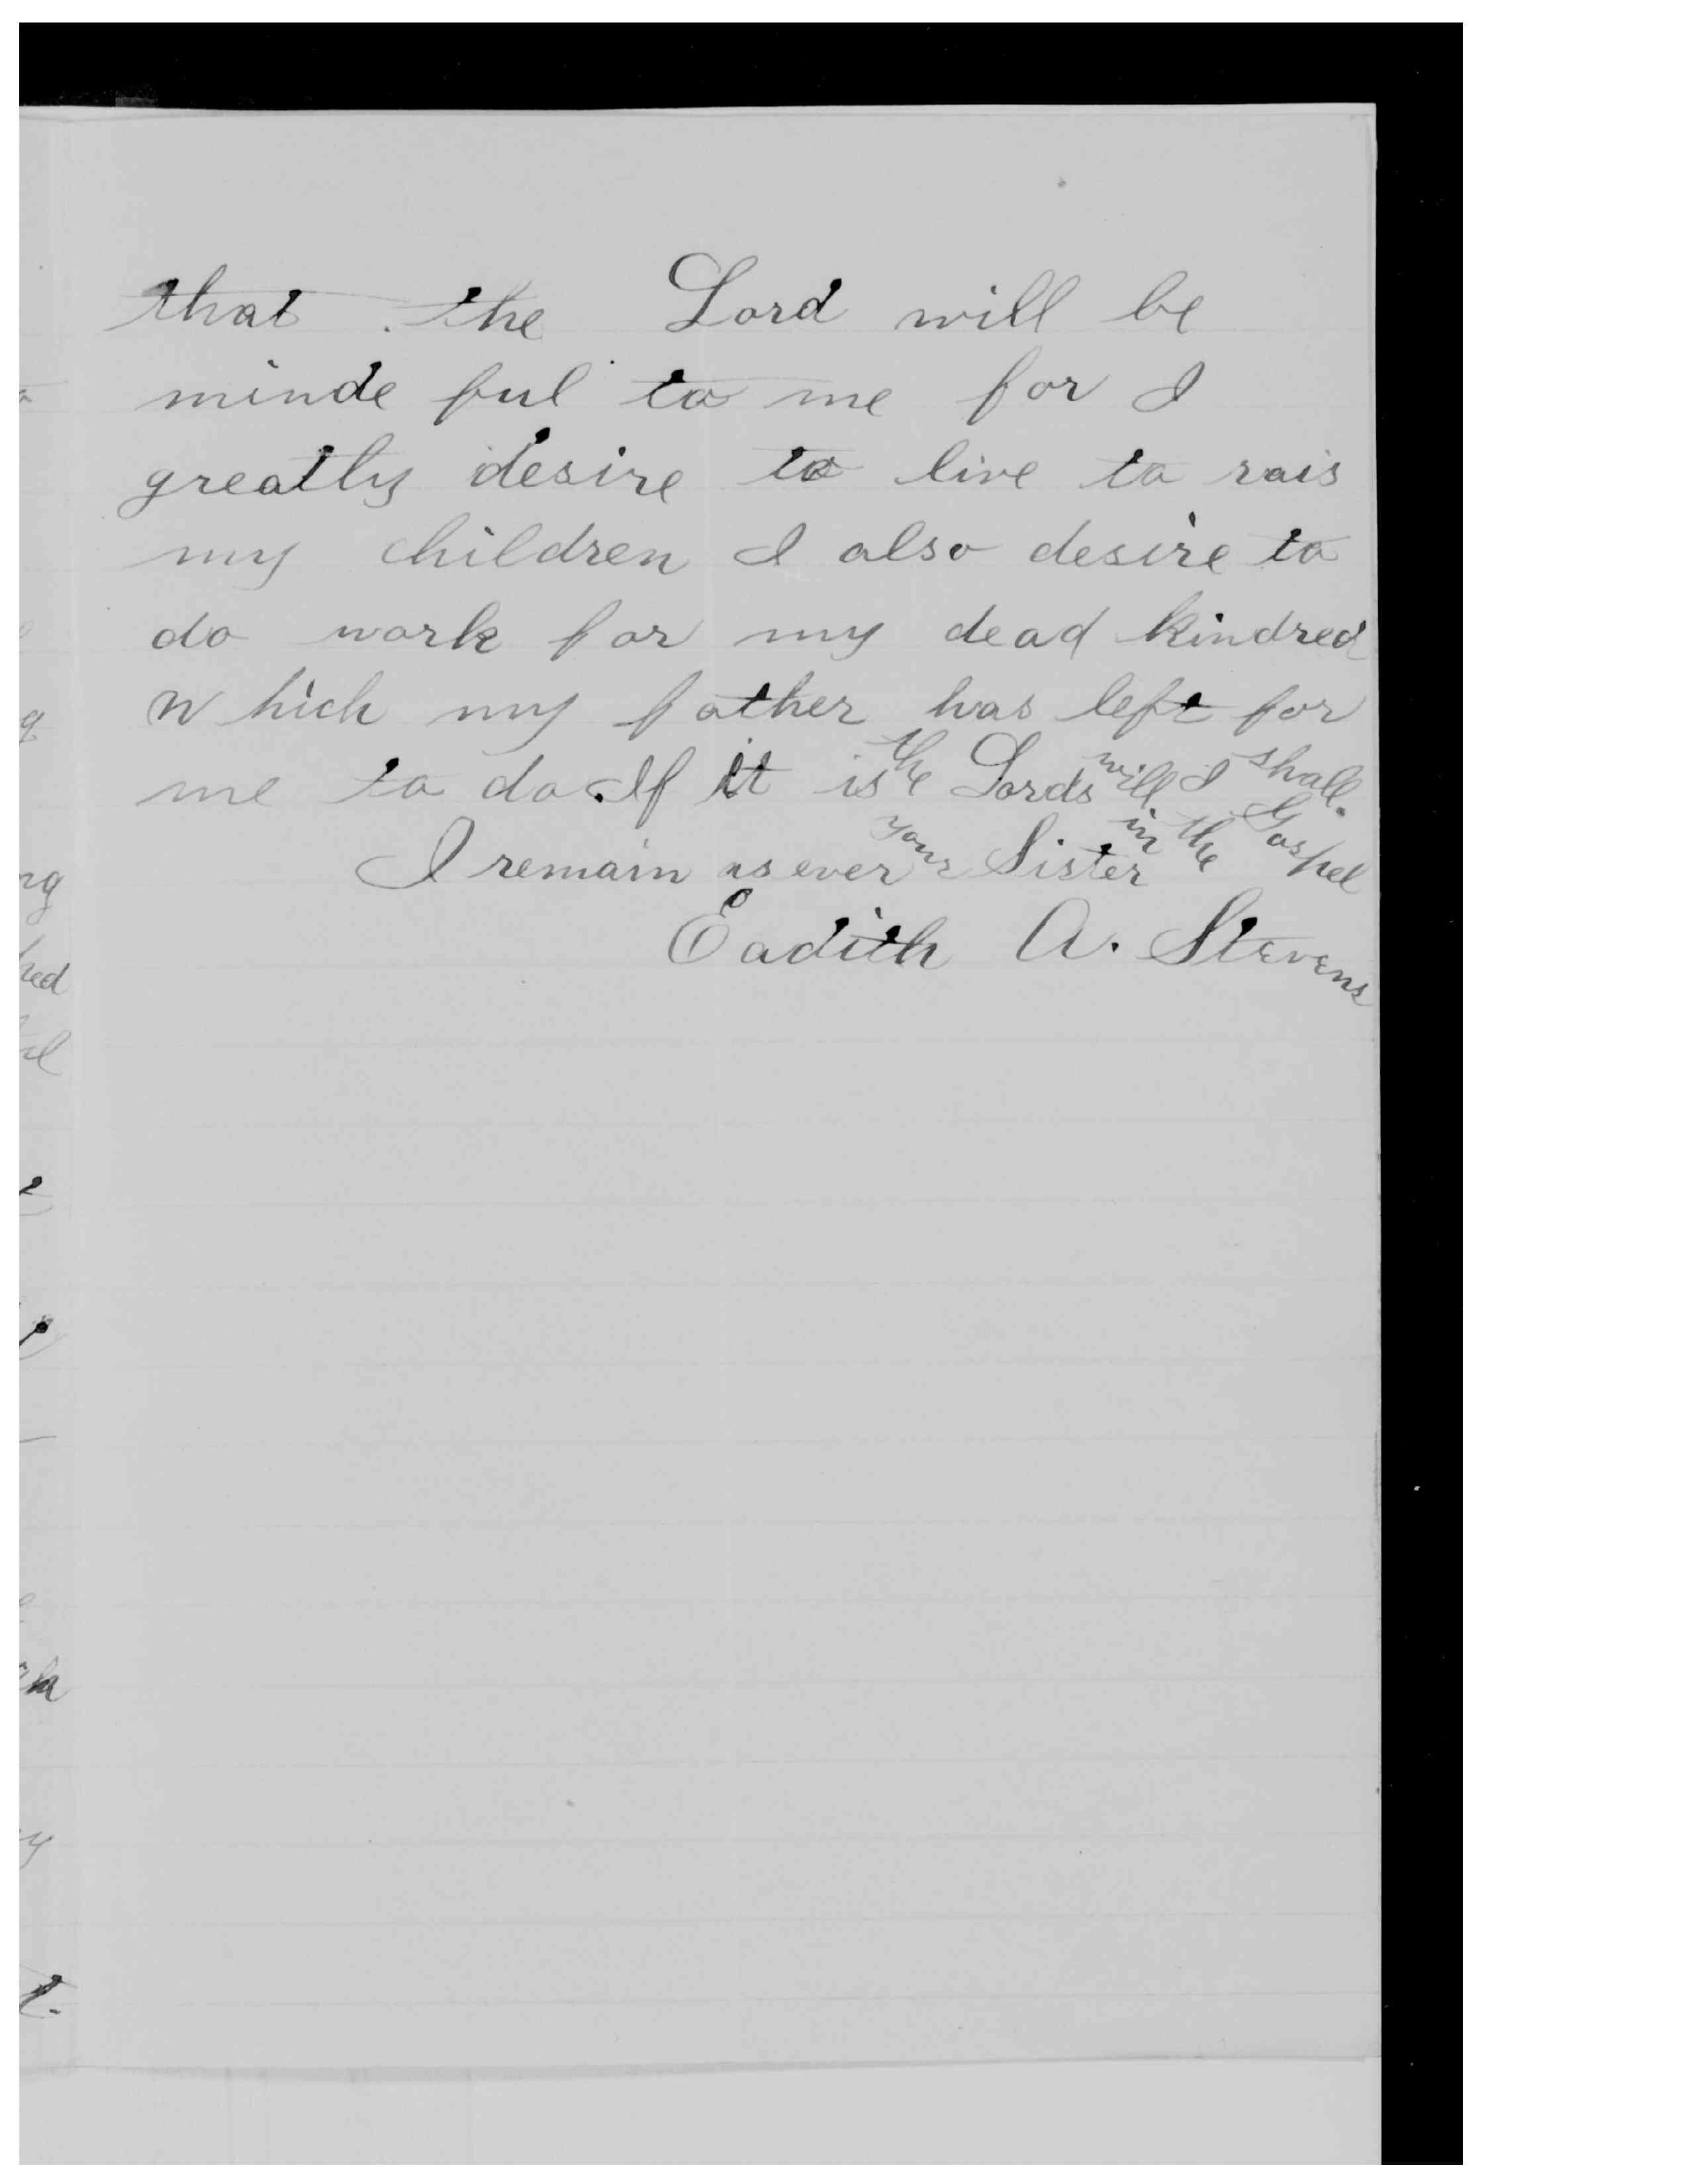 that the Lord will be
minde ful to me for I
greatly desire to live to rais
my children I also desire to
do work for my dead kindred
which my father has left for
me to do. If it is the Lords will I shall.
I remain as ever your Sister in the Gospel
Eadith A. Stevens